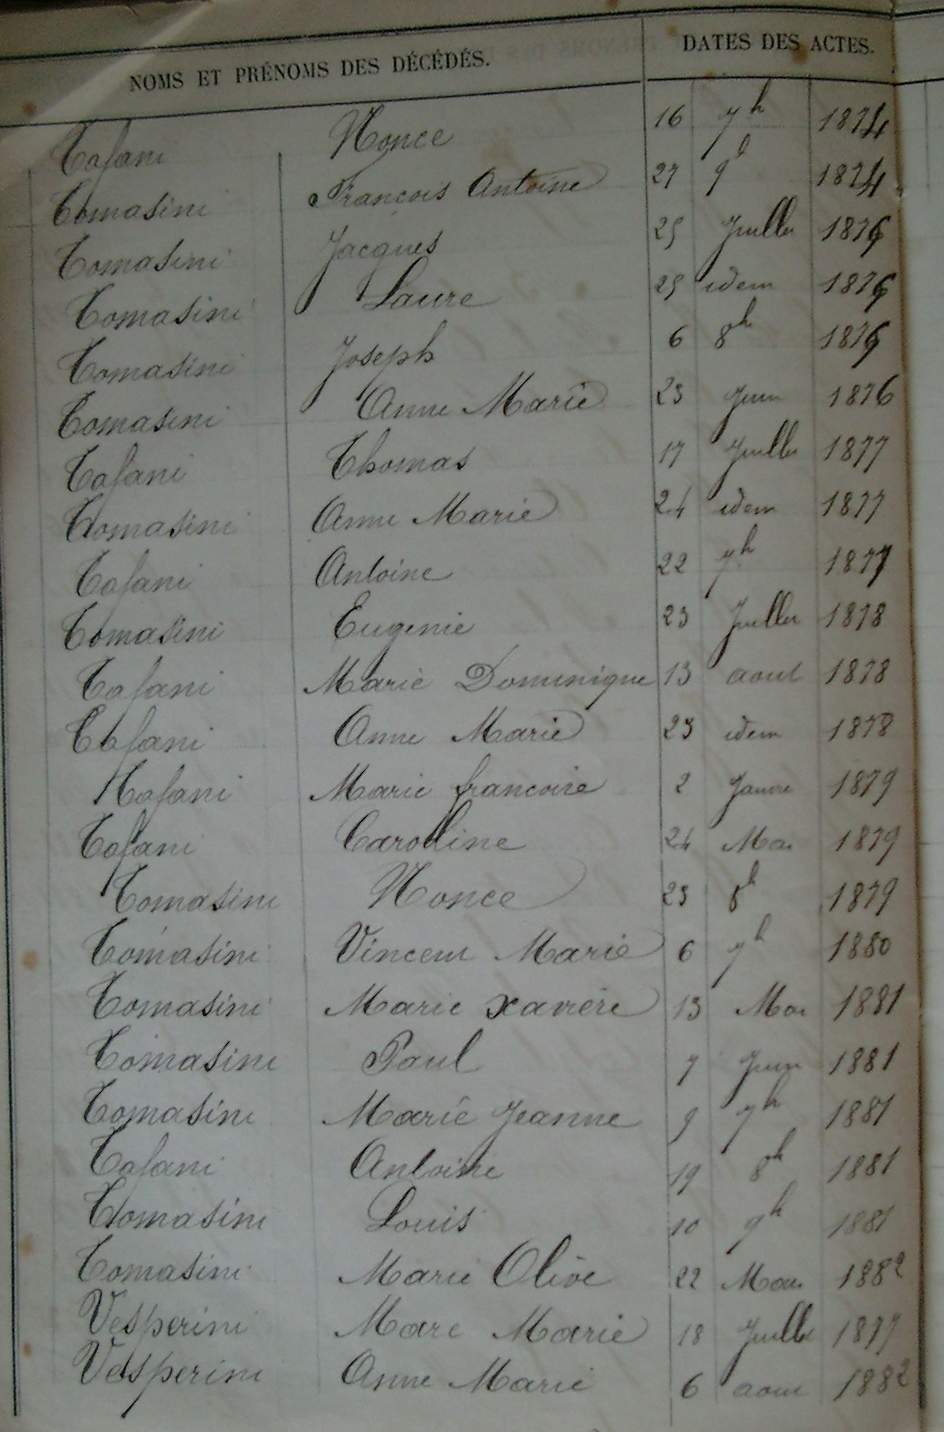 NOMS ET PRÉNOMS DES DÉCÉDÉS. DATES DES ACTES.
Tafani Nonce 16 7h 1874
Tomasini Francois Antoine 27 9h 1874
Tomasini Jacques 25 Juillet 1876
Tomasini Laure 25 idem 1876
Tomasini Joseph 6 8h 1876
Tomasini Anne Marie 23 Juin 1876
Tafani Thomas 17 Juillet 1877
Tomasini Anne Marie 24 idem 1877
Tafani Antoine 22 7h 1877
Tomasini Eugenie 23 Juillet 1878
Tafani Marie Dominique 13 aout 1878
Tafani Anne Marie 23 idem 1878
Tafani Marie francoise 2 Janvier 1879
Tafani Caroline 24 Mai 1879
Tomasini Nonce 23 8h 1879
Tomasini Vincent Marie 6 7h 1880
Tomasini Marie Xavière 13 Mai 1881
Tomasini Paul 7 Juin 1881
Tomasini Marie Jeanne 9 7h 1881
Tafani Antoine 19 8h 1881
Tomasini Louis 10 9h 1881
Tomasini Marie Olive 22 Mars 1882
Vesperini Marc Marie 18 Juillet 1877
Vesperini Anne Marie 6 aout 1882